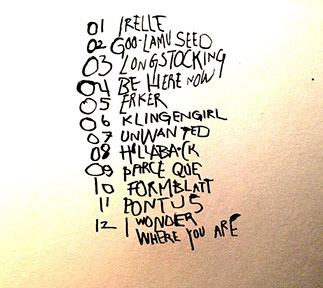 01 IRELLE
02 GOO-LAMU SEED
03 LONGSTOCKING
04 BE HERE NOW
05 ERKER
06 KLINGENGIRL
07 UNWANTED
08 HILLABACK
09 PARCE QUE
10 FORMBLATT
11 PONTUS
12 I WONDER
WHERE YOU ARE